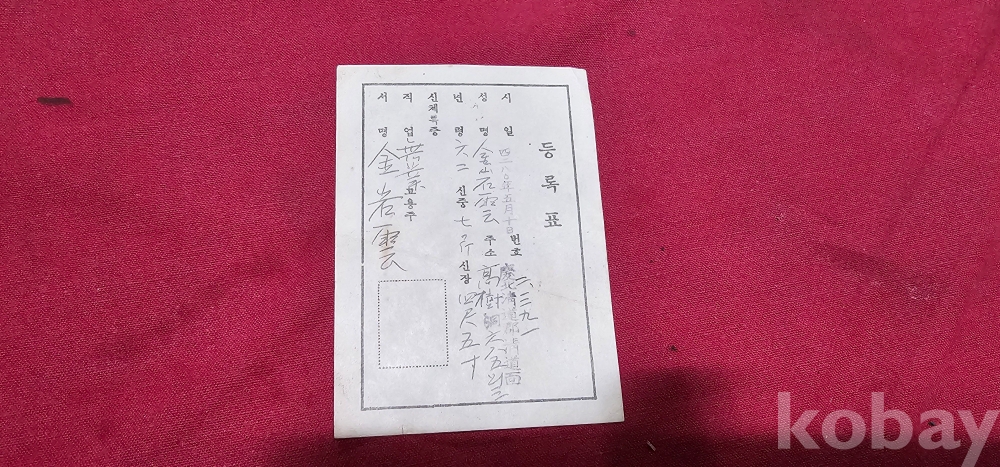 등록표
번호 二、三九一
시일 四二八〇年五月十日
주소 慶北淸道郡淸道面
성명 金岩雲
高樹洞六五번
년령 六二 신중 七 신장 四尺五寸
신체특증
직업 無業 고용주
서명 金岩雲
kobay